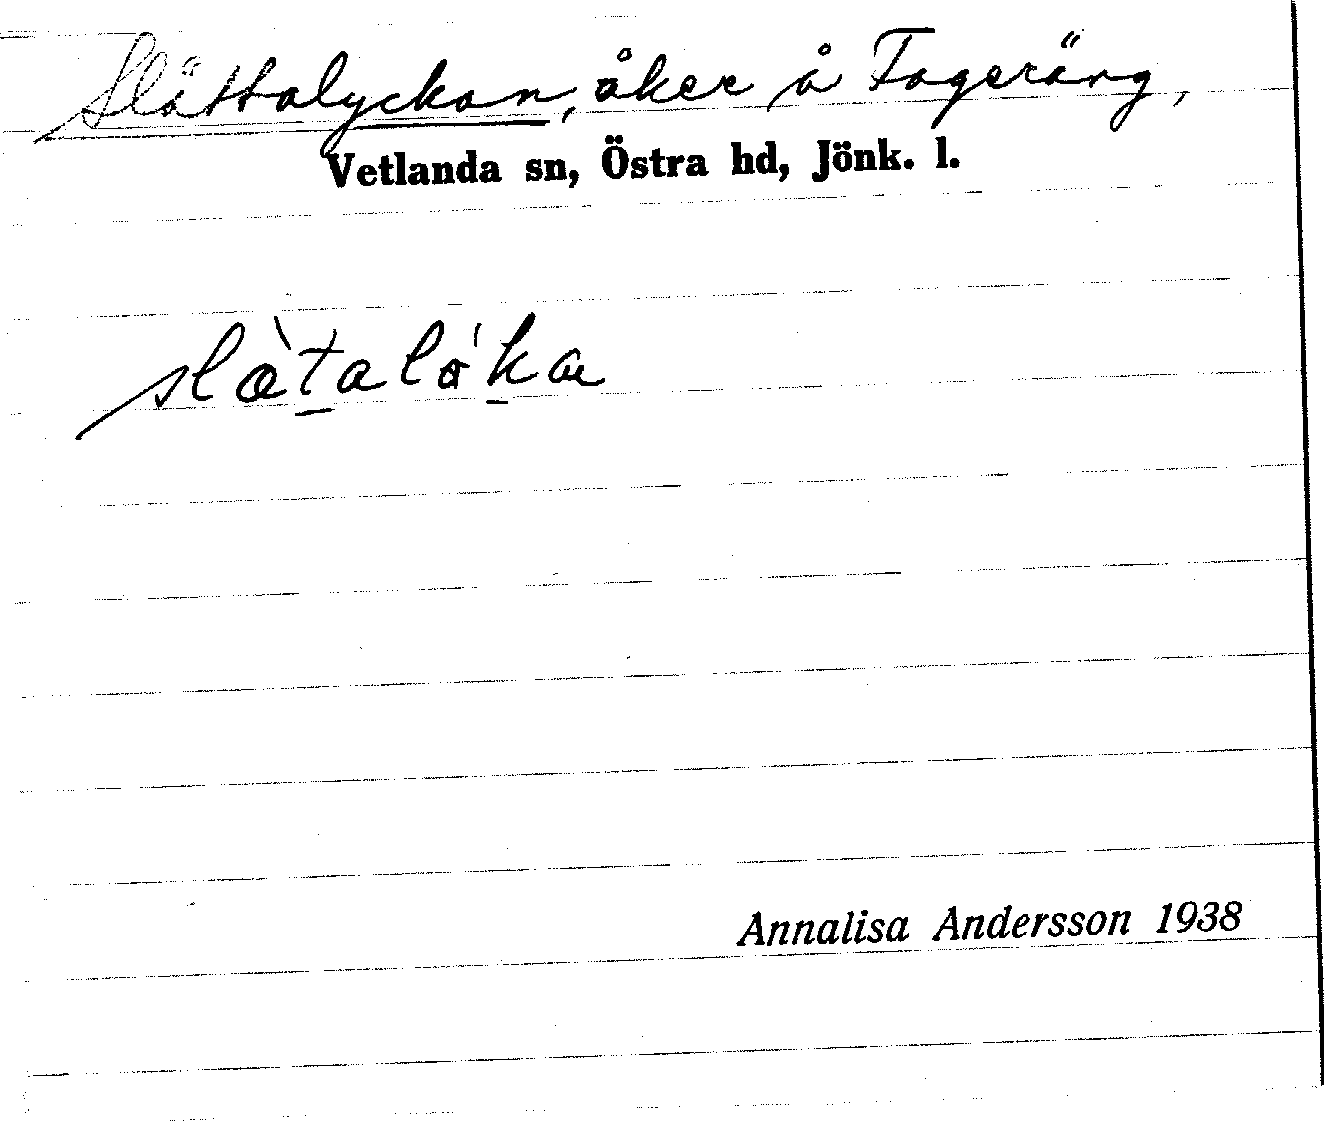 Slättalyckan, åker å Fageräng,
Vetlanda sn, Östra hd, Jönk. l.
slæ̀taló̵ka
Annalisa Andersson 1938